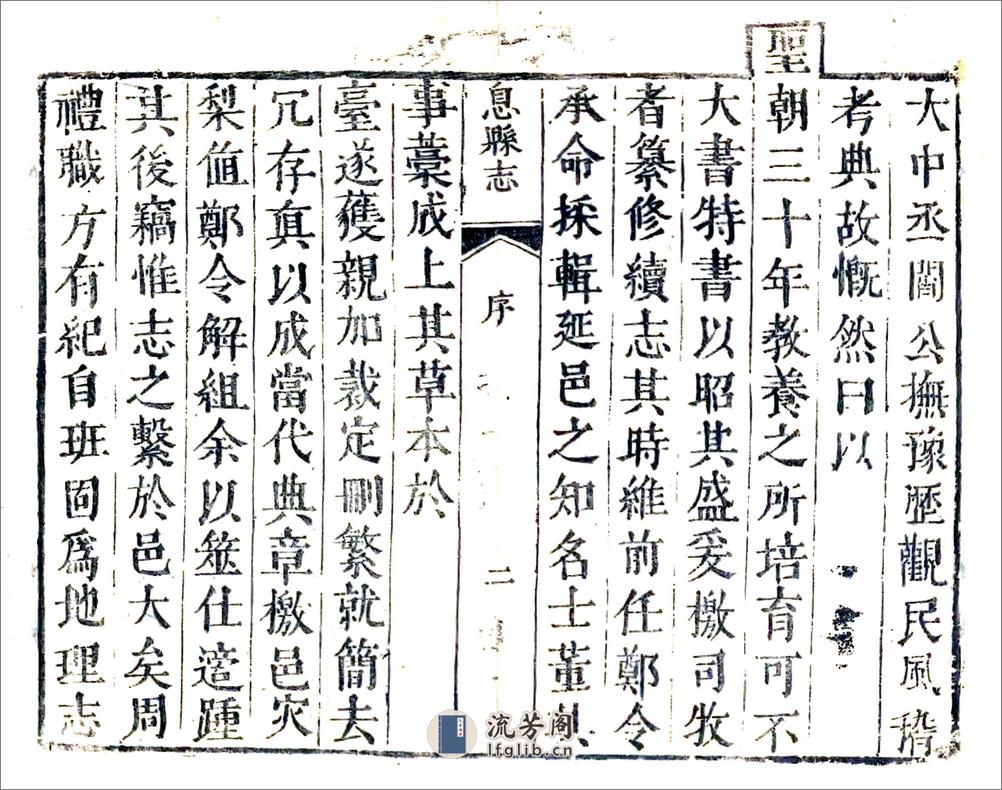 大中丞閻公撫豫歷觀民風稽
考典故慨然曰以
聖
朝三十年教養之所培育可不
大書特書以昭其盛爰檄司牧
者纂修續志其時維前任鄭令
承命採輯延邑之知名士董其
息縣志
序
二
事藁成上其草本於
臺遂獲親加裁定刪繁就簡去
冗存真以成當代典章檄邑灾
梨值鄭令解組余以筮仕適踵
其後竊惟志之繫於邑大矣周
禮職方有紀自班固爲地理志
流芳阁
lfglib.cn